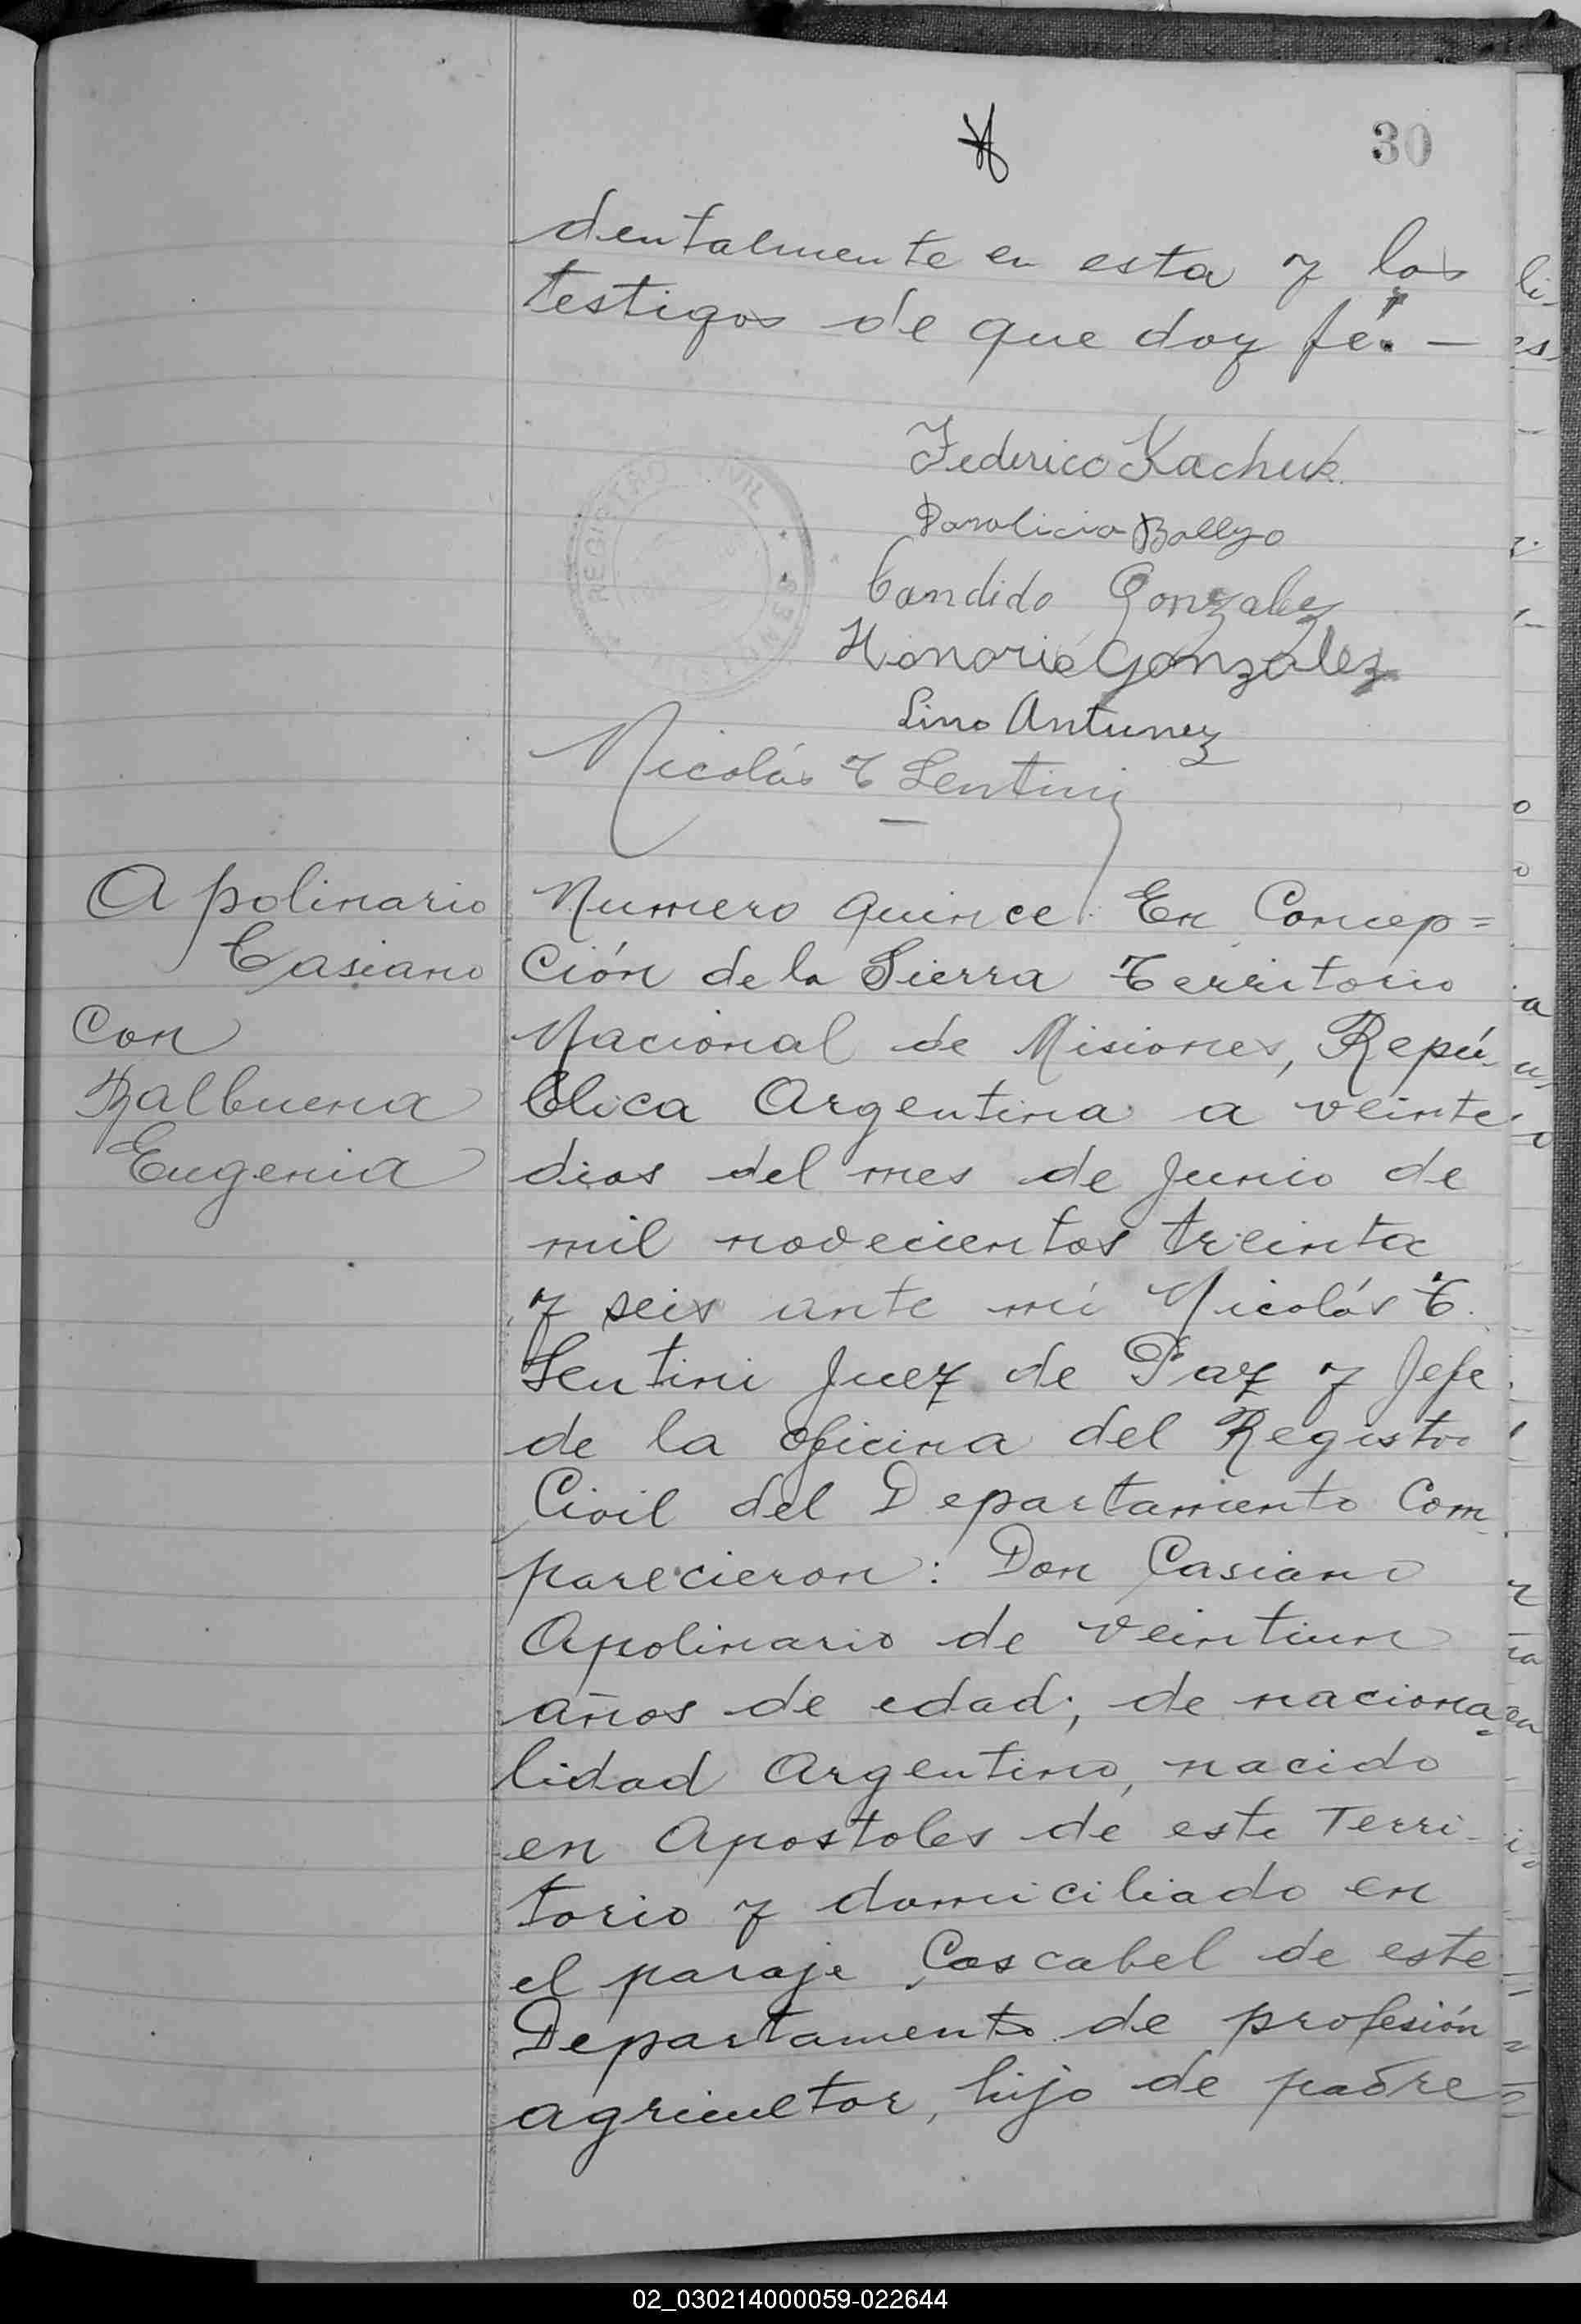 30
dentalmente en esta y los
testigos de que doy fé. —
Federico Kachuk
Candido Gonzalez
Honorio Gonzalez
Lino Antunez
Nicolás T Sentini
REGISTRO CIVIL
MISIONES
Apolinario
Casiano
con
Balbuena
Eugenia
Numero quince. En Concep=
ción de la Sierra Territorio
Nacional de Misiones, Repú-
blica Argentina a veinte
dias del mes de Junio de
mil novecientos treinta
y seis ante mi Nicolás T.
Sentini Juez de Paz y Jefe
de la oficina del Registro
Civil del Departamento Com-
parecieron: Don Casiano
Apolinario de veintiun
años de edad; de naciona=
lidad Argentino, nacido
en Apostoles de este Terri-
torio y domiciliado en
el paraje Cascabel de este
Departamento de profesión
agricultor, hijo de padre
02_030214000059-022644